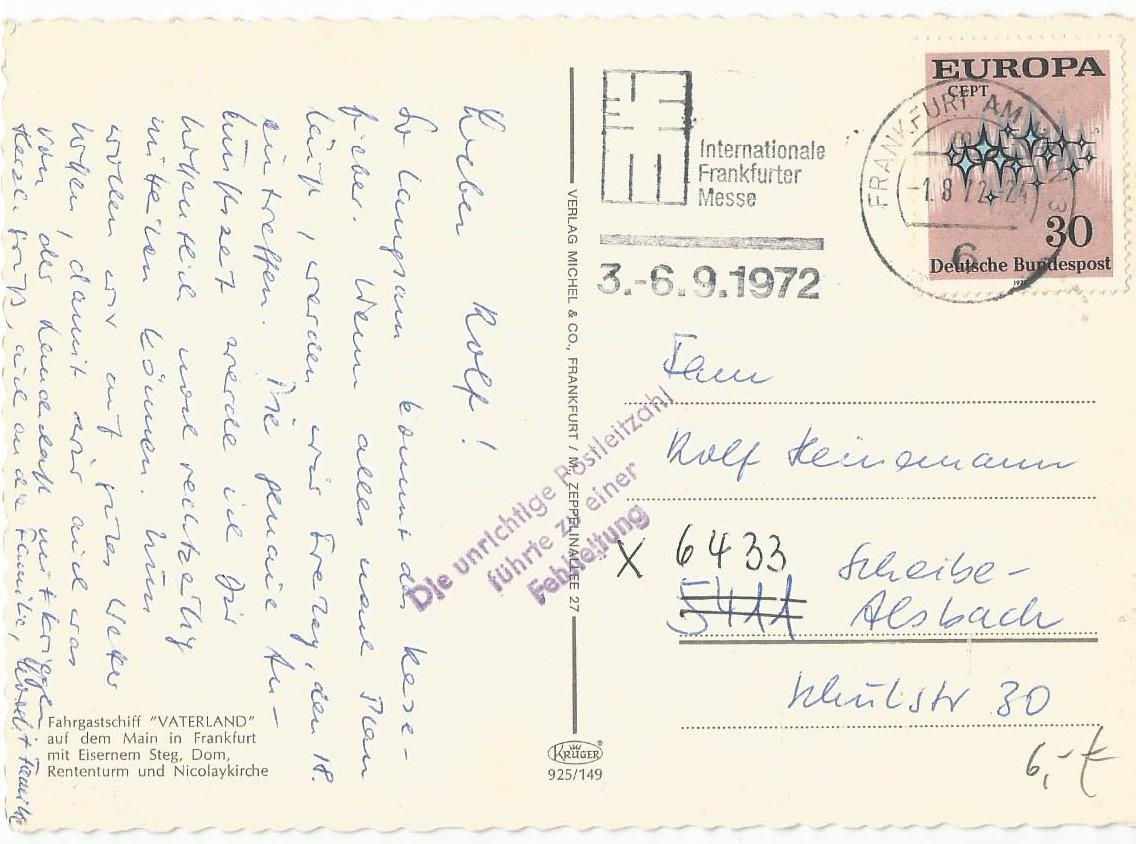 Lieber Rolf!
So langsam kommt das Reise-
fieber. Wenn alles nach Plan
läuft, werden wir Freitag, den 18.
eintreffen. Die genaue An-
kunftszeit werde ich Dir
hoffentlich noch rechtzeitig
mitteilen können. Nun
wollen wir auf gutes Wetter
hoffen, damit wir auch was
von der Landschaft mitkriegen
Herzl. Grüße, auch an die Familie, Familie
Fahrgastschiff "VATERLAND"
auf dem Main in Frankfurt
mit Eisernem Steg, Dom,
Rententurm und Nicolaykirche
VERLAG MICHEL & CO., FRANKFURT / M., ZEPPELINALLEE 27
KRÜGER®
925/149
Internationale
Frankfurter
Messe
3.-6.9.1972
FRANKFURT AM MAIN 3
-1.8.72-24
6
EUROPA
CEPT
30
Deutsche Bundespost
1972
Die unrichtige Postleitzahl
führte zu einer
Fehlleitung
Fam
Rolf Heinemann
X 6433
5411
Scheibe-
Alsbach
Schulstr 30
6,- €